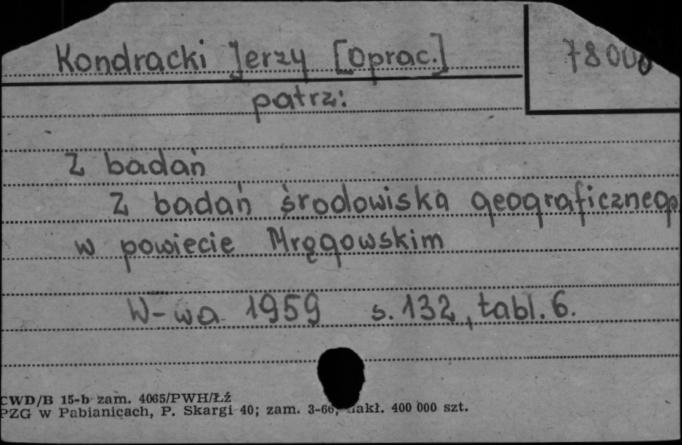 Kondracki Jerzy [Oprac.] 78000
patrz:
Z badań
Z badań środowiska geograficznego
w powiecie Mręgowskim
W-wa 1959 s. 132, tabl. 6.
CWD/B 15-b zam. 4065/PWH/Łź
PZG w Pabianicach, P. Skargi 40; zam. 3-66, nakł. 400 000 szt.